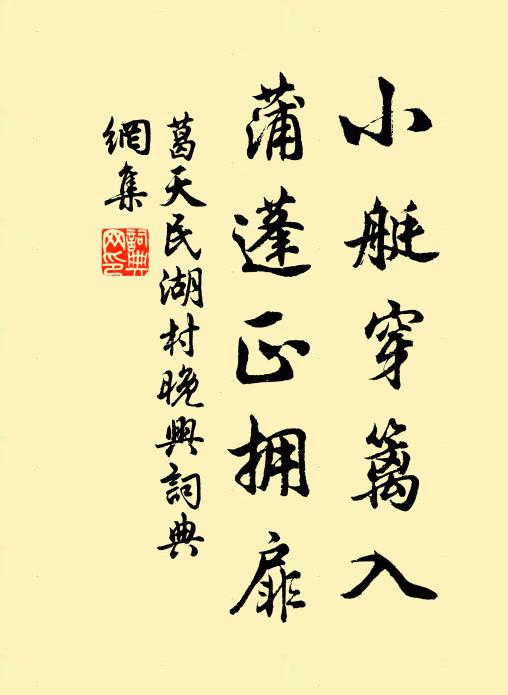 小艇穿篱入
蒲蓬正拥扉
葛天民湖村晚興詞典
網集
詞典
网印